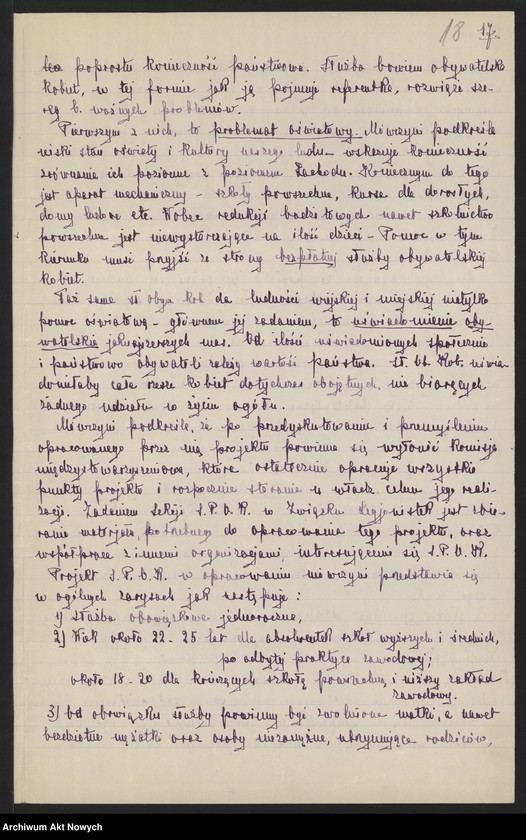 18 17.
poprostu konieczność państwowa. Służba bowiem obywatelska
kobiet, w tej formie jak ją pojmuje referentka, rozwiąże sze-
reg b. ważnych problemów.
Pierwszym z nich, to problemat oświatowy. Mówczyni podkreśla
niski stan oświaty i kultury naszego ludu - wskazuje konieczność
zrównania ich poziomu z poziomem Zachodu. Koniecznym do tego
jest aparat mechaniczny - szkoły powszechne, kursa dla dorosłych,
domy ludowe etc. Wobec redukcji budżetowych nawet szkolnictwo
powszechne jest niewystarczające na ilość dzieci - Pomoc w tym
kierunku musi przyjść ze strony bezpłatnej służby obywatelskiej
kobiet.
Taż sama sł. obyw. kob. da ludności wiejskiej i miejskiej nietylko
pomoc oświatową - głównem jej zadaniem, to uświadomienie oby-
watelskie jaknajszerszych mas. Od ilości uświadomionych społecznie
i państwowo obywateli zależy wartość państwa. Sł. Ob. Kob. uświa-
domiłaby całe rzesze kobiet dotychczas obojętnych, nie biorących
żadnego udziału w życiu ogółu.
Mówczyni podkreśla, że po przedyskutowaniu i przemyśleniu
opracowanego przez nią projektu powinna się wyłonić Komisja
międzystowarzyszeniowa, która ostatecznie opracuje wszystkie
punkty projektu i rozpocznie starania u władz celem jego reali-
zacji. Zadaniem Sekcji S.P.O.K. w Związku Legjonistek jest zbie-
ranie materjału, potrzebnego do opracowania tego projektu, oraz
współpraca z innemi organizacjami, interesującemi się S.P.O.K.
Projekt S.P.O.K. w opracowaniu mówczyni przedstawia się
w ogólnych zarysach jak następuje:
1) Służba obowiązkowa jednoroczna,
2) Wiek około 22-25 lat dla absolwentek szkół wyższych i średnich,
po odbytej praktyce zawodowej;
około 18-20 dla kończących szkołę powszechną i niższy zakład
zawodowy.
3) Od obowiązku służby powinny być zwolnione matki, a nawet
bezdzietne mężatki oraz osoby niezamężne, utrzymujące rodziców,
Archiwum Akt Nowych